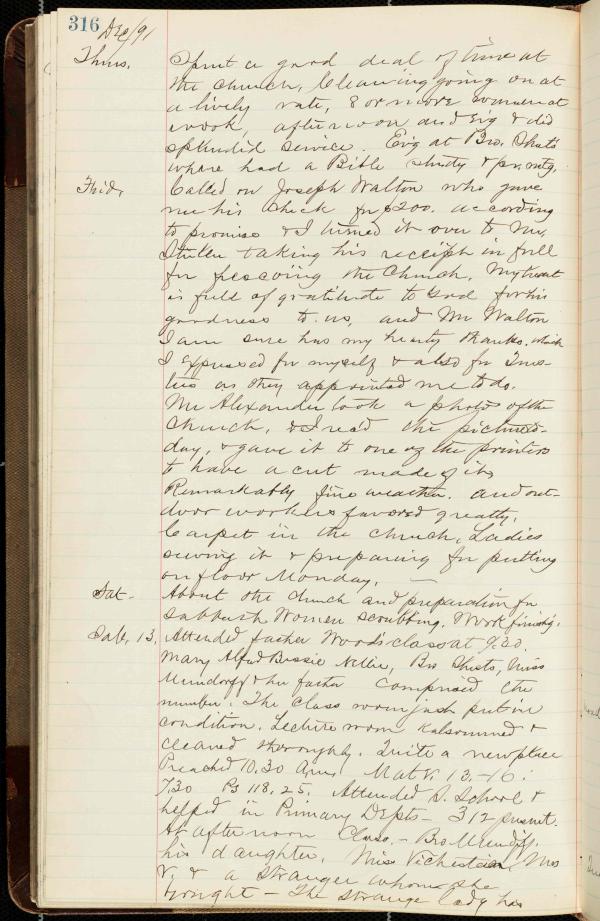 316 Dec/91
Thurs. Spent a good deal of time at
the church, Cleaning going on at
a lively rate, 8 or more women at
work, afternoon and Evg & did
splendid service. Evg at Bro. Shests
where had a Bible study & pr. mtg.
Frid, Called on Joseph Walton who gave
me his check for $200. according
to promise & I turned it over to Mr.
taking his receipt in full
for frescoiing the Church. My heart
is full of gratitude to God for his
goodness to us, and Mr Walton
I am sure has my hearty thanks. which
I expressed for myself & also for Trus-
tees as they appointed me to do.
Mr Alexander took a photo of the
Church, & I rec'd the picture to-
day, & gave it to one of the printers
to have a cut made of it.
Remarkably fine weather. and out-
door workers favored greatly.
Carpet in the church, Ladies
sewing it & preparing for putting
on floor Monday. —
Sat - About the church and preparation for
Sabbath Women scrubbing. Work finish'g.
Sab, 13, Attended father Wood's class at 9.30.
Mary Alfred Bessie Nellie, Bro Shests, Miss
Mundorff & her father comprised the
number. The class room just put in
condition. Lecture room Kalsomined &
cleaned thoroughly. Quite a new place
Preached 10.30 a.m. Mat V. 13,-16:
7.30 Ps 118, 25. Attended S. School &
helped in Primary Dept - 312 present.
At afternoon Class. - Bro Mundorff,
his daughter, Miss Mrs
V. & a stranger whom she
brought - The strange lady has